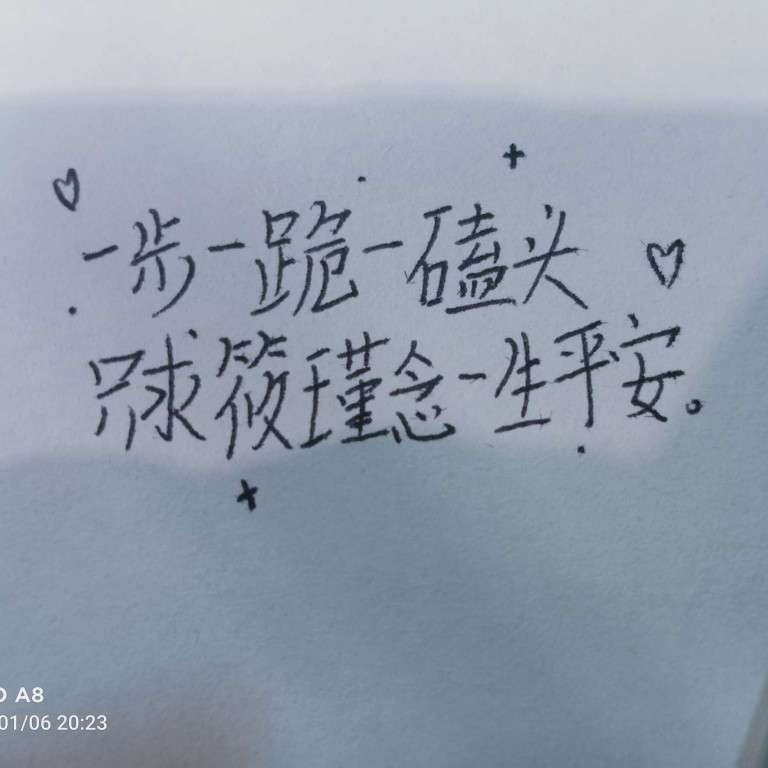 一步一跪一磕头
只求筱瑾念一生平安。
A8
01/06 20:23